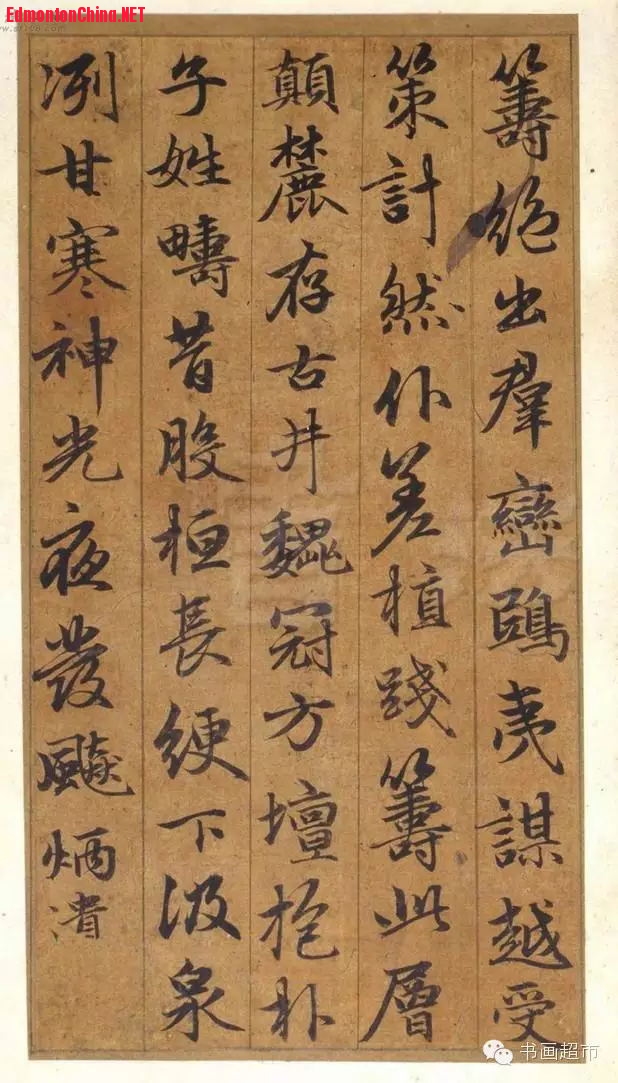 EdmontonChina.NET
籌絶出羣巒鴟夷謀越受
策計然仆差植踐籌此層
顛麓存古井魏冠方壇抱朴
子姓疇昔般桓長綆下汲泉
冽甘寒神光夜發飈炳潰
书画超市